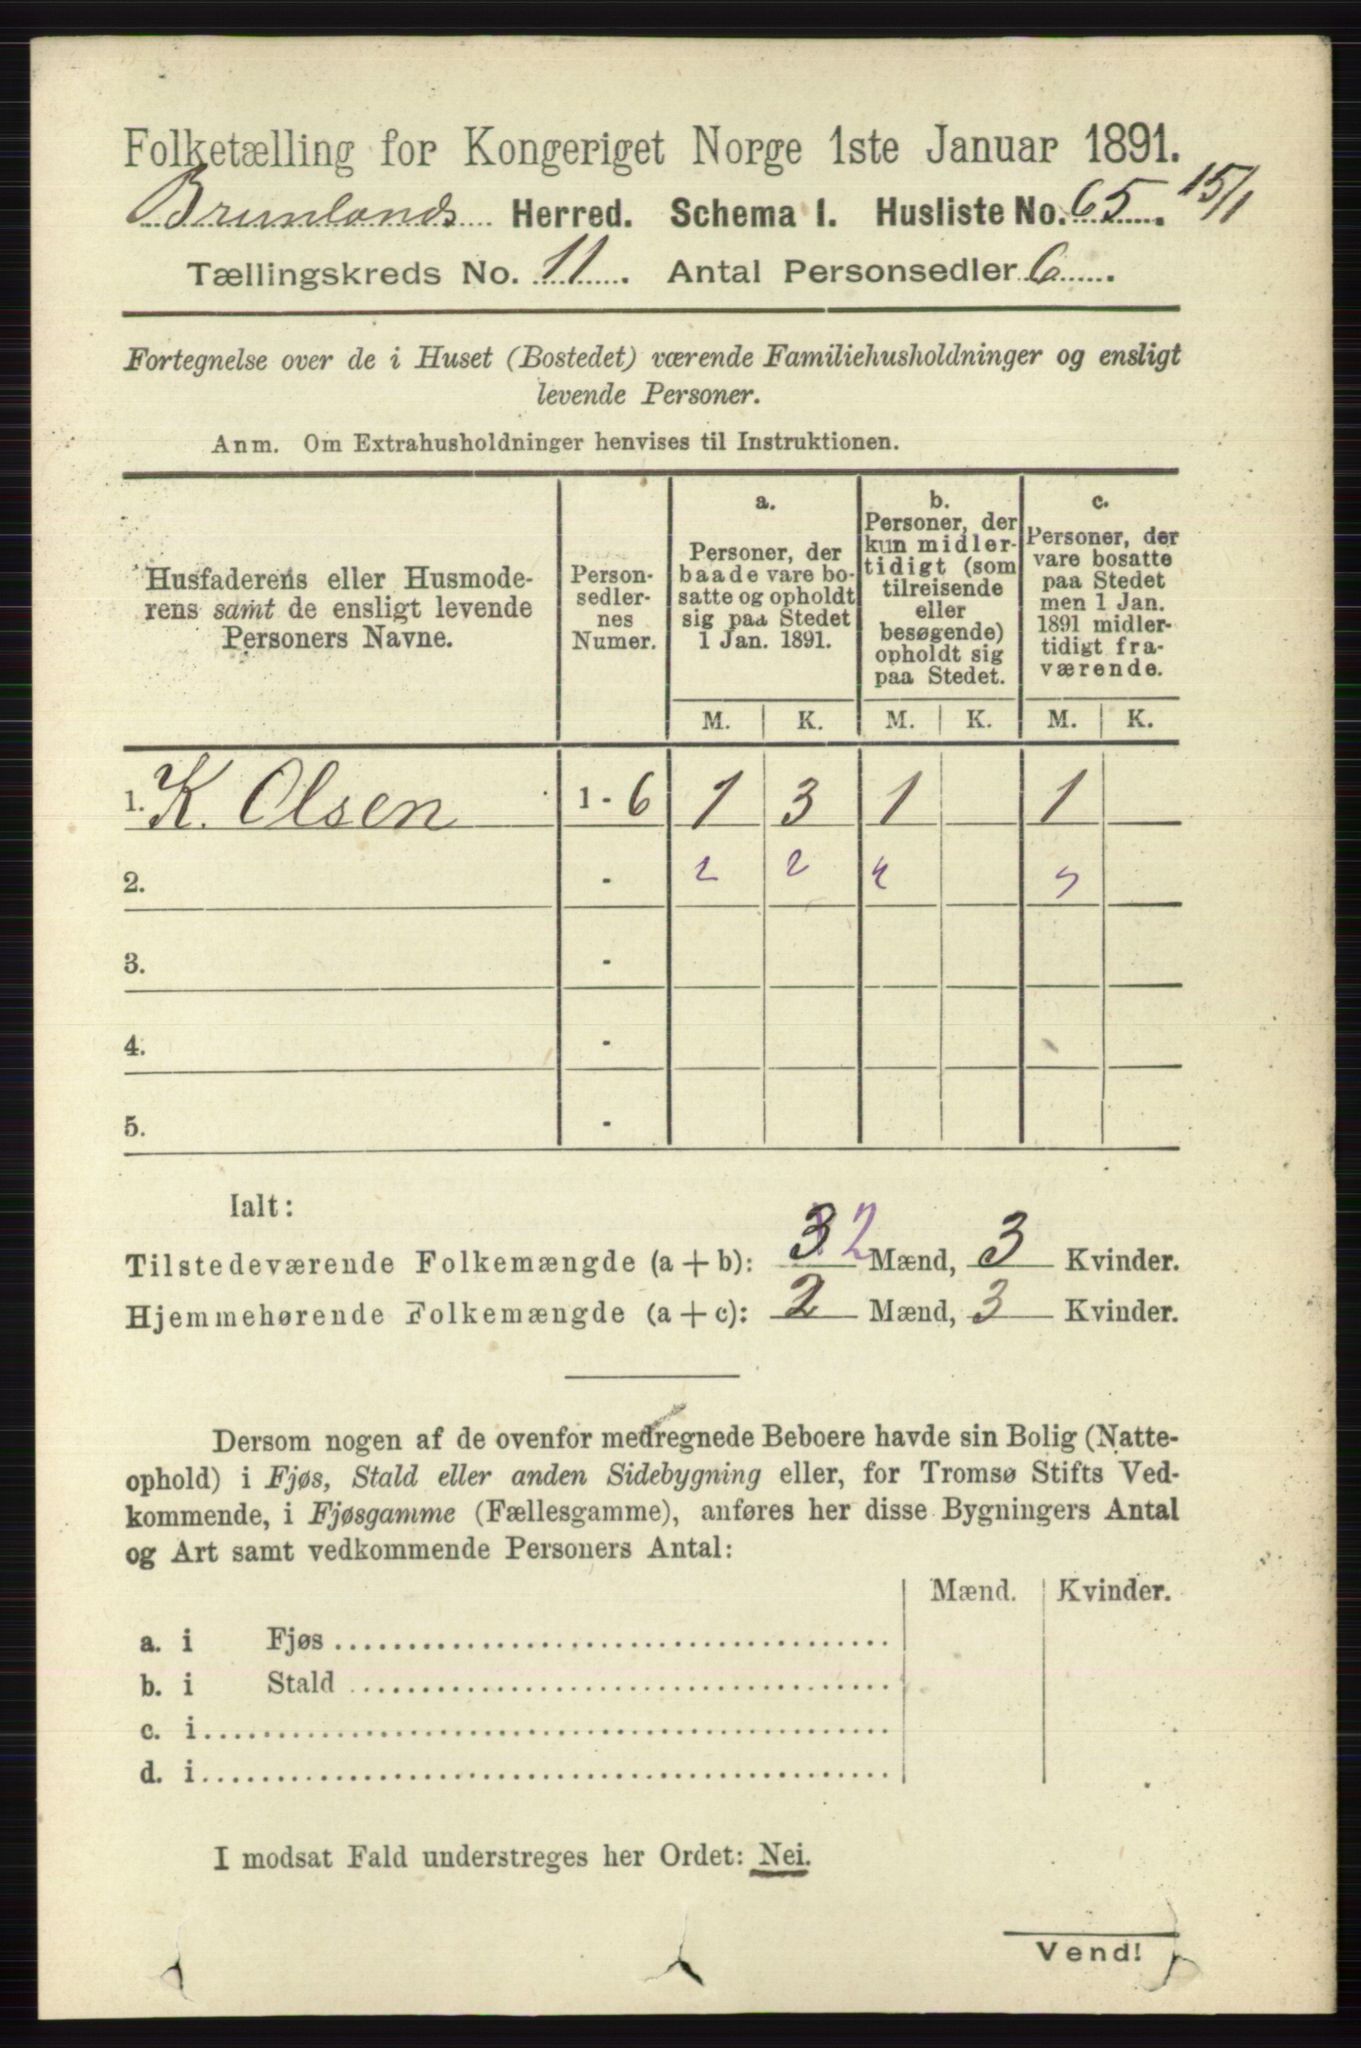 Folketælling for Kongeriget Norge 1ste Januar 1891.
Brunlands Herred. Schema 1. Husliste No. 65. 15/1
Tællingskreds No. 11. Antal Personsedler 6
Fortegnelse over de i Huset (Bostedet) værende Familiehusholdninger og ensligt
levende Personer.
Anm. Om Extrahusholdninger henvises til Instruktionen.
Husfaderens eller Husmode-
rens samt de ensligt levende
Personers Navne.
Person-
sedler-
nes
Numer.
a.
Personer, der
baade vare bo-
satte og opholdt
sig paa Stedet
1 Jan. 1891.
b.
Personer, der
kun midler-
tidigt (som
tilreisende
eller
besøgende)
opholdt sig
paa Stedet.
c.
Personer, der
vare bosatte
paa Stedet
men 1 Jan.
1891 midler-
tidigt fra-
værende.
M. K. M. K. M. K.
1. K. Olsen 1 - 6 1 3 1 1
2. - 2 2
3. -
4. -
5. -
Ialt:
Tilstedeværende Folkemængde (a + b): 3 2 Mænd, 3 Kvinder.
Hjemmehørende Folkemængde (a + c): 2 Mænd, 3 Kvinder.
Dersom nogen af de ovenfor medregnede Beboere havde sin Bolig (Natte-
ophold) i Fjøs, Stald eller anden Sidebygning eller, for Tromsø Stifts Ved-
kommende, i Fjøsgamme (Fællesgamme), anføres her disse Bygningers Antal
og Art samt vedkommende Personers Antal:
Mænd. Kvinder.
a. i Fjøs
b. i Stald
c. i
d. i
I modsat Fald understreges her Ordet: Nei.
Vend!